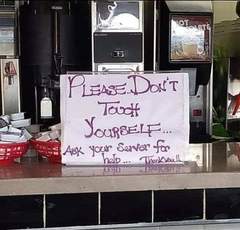 PLEASE.. DON'T
TOUCH
YOURSELF...
ASK your Server for
help... Thankyou!!